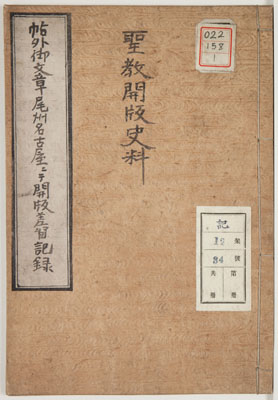 聖教開版史料
帖外御文章尾州名古屋ニテ開版差留記録
022
158
1
記
19
号
84